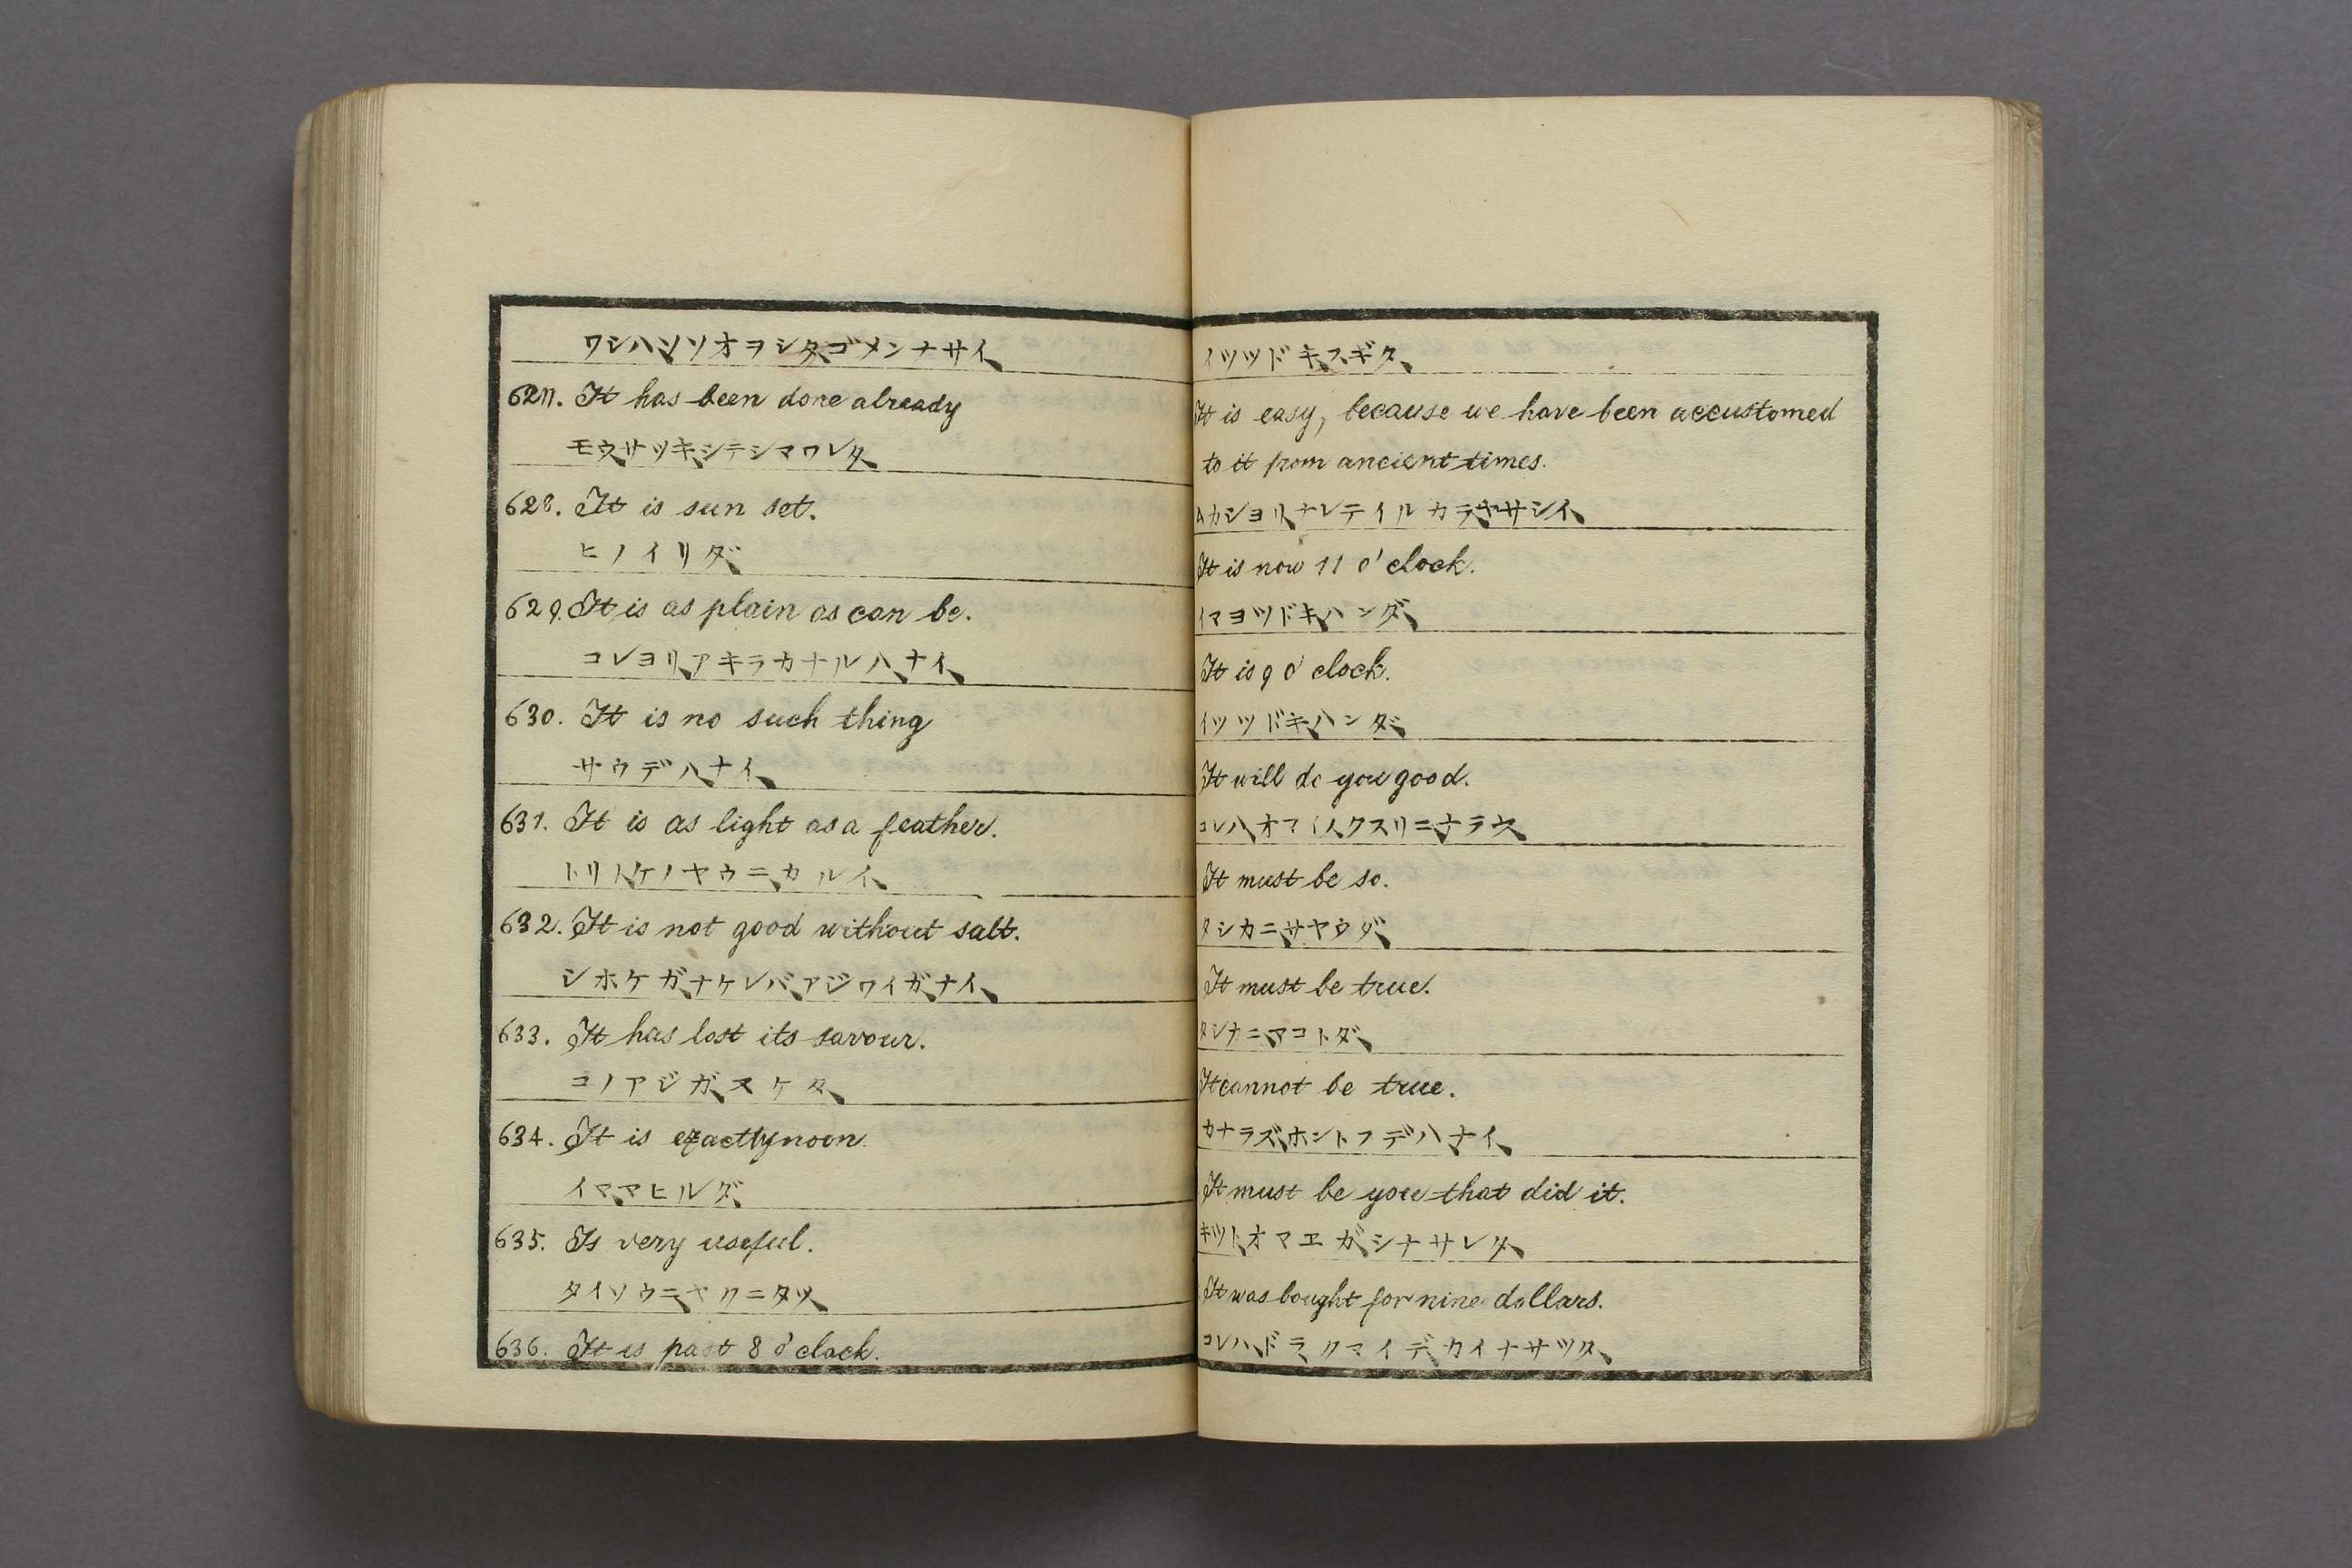 ワシハ、ソソオヲシタ、ゴメンナサイ、
627. It has been done already
モウ、サツキ、シテシマワレタ、
628. It is sun set.
ヒノイリダ、
629. It is as plain as can be.
コレヨリ、アキラカナルハ、ナイ、
630. It is no such thing
サウデハ、ナイ、
631. It is as light as a feather.
トリノ、ケノヤウニ、カルイ、
632. It is not good without salt.
シホケガ、ナケレバ、アジワイガ、ナイ、
633. It has lost its savour.
コノアジガ、ヌケタ、
634. It is exactly noon.
イマ、マヒルダ、
635. Is very useful.
タイソウニ、ヤクニタツ、
636. It is past 8 o'clock.
イツツドキ、スギタ、
It is easy, because we have been accustomed
to it from ancient times.
ムカシヨリ、ナレテイルカラ、ヤサシイ、
It is now 11 o'clock.
イマヨツドキ、ハンダ、
It is 9 o'clock.
イツツドキ、ハンダ、
It will do you good.
コレハ、オマイノ、クスリニ、ナラウ、
It must be so.
タシカニ、サヤウダ、
It must be true.
タシカニ、マコトダ、
It cannot be true.
カナラズ、ホントフデハ、ナイ、
It must be you that did it.
キツト、オマエガ、シナサレタ、
It was bought for nine dollars.
コレハ、ドラ、クマイデ、カイナサツタ、